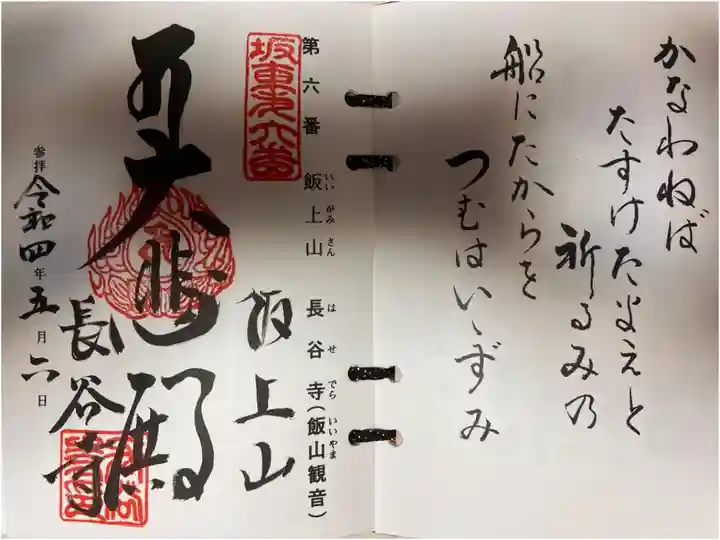 かなわねば
たすけたまえと
祈るみの
船にたからを
つむはいゝずみ
第六番 飯上山 長谷寺(飯山観音)
いい がみ さん は せ でら いい やま
坂東第六番
飯上山
大悲殿
長谷寺
参拝 令和四年五月六日